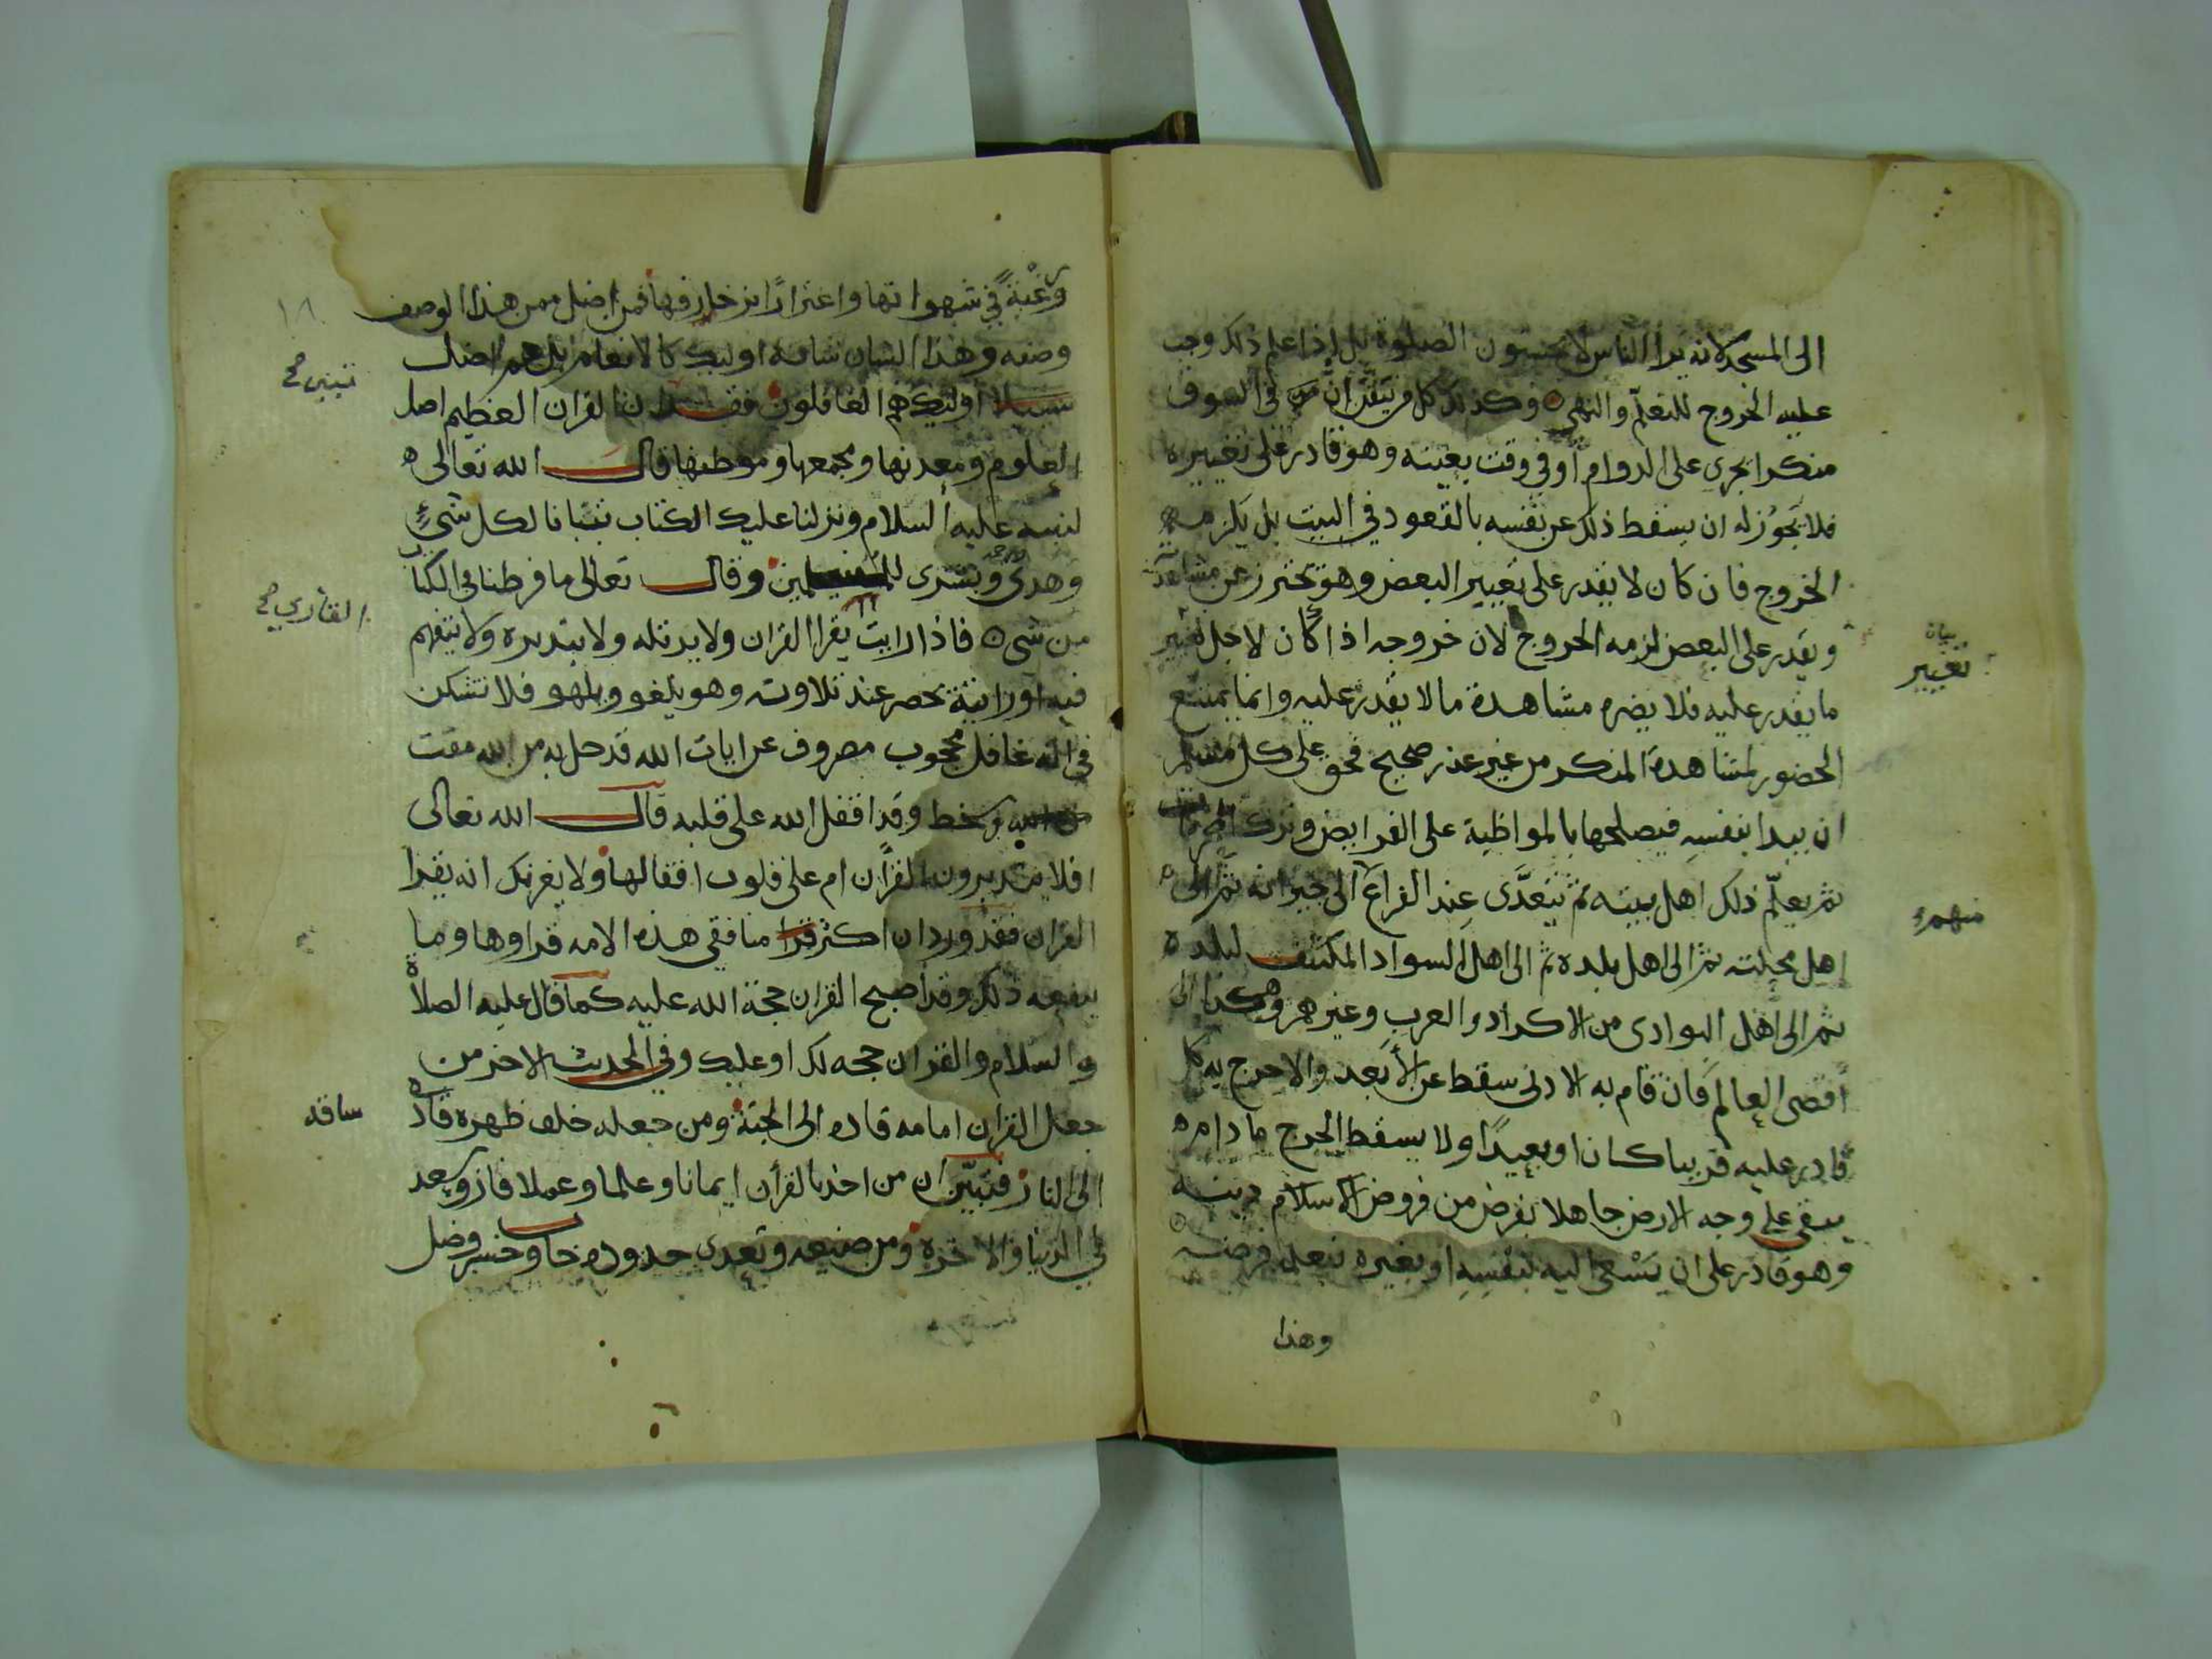 الى المسجد لانه يرا الناس لا يحسنون الصلوة بل اذا علم ذلك وجب
عليه الخروج للتعلّم والنهي ٥ وكذلك كل من تيقّن انّ في السوق
منكرا يجرى على الدوام أو في وقت بعينه وهو قادر على تغييره
فلا يَجُوز له ان يسقط ذلك عن نفسه بالقعود في البيت بل يلزمه
الخروج فان كان لا يقدر على تغيير البعض وهو محترز عن مشاهدته
ويقدر على البعض لزمه الخروج لان خروجه اذا كان لاجل تغيير
بيان
تغيير
ما يقدر عليه فلا يضره مشاهدة ما لا يقدر عليه وانما يمتنع
الحضور لمشاهدة المنكر من غير عذر صحيح فحق على كل مسلم
ان يبدا بنفسه فيصلحها بالمواظبة على الفرايض وترك المحرمات
ثم يعلّم ذلك اهل بيته ثم يتعدَّى عند الفراغ الى جيرانه ثم الى
منهم
اهل محلته ثم الى اهل بلده ثم الى اهل السواد المكتنف لبلده
ثم الى اهل البوادى من الاكراد والعرب وغيرهم وهكذا الى
أقصى العالم فان قام به الادنى سقط عن الأبعد والا حرج به كل
قادر عليه قريبا كان او بعيدًا ولا يسقط الحرج ما دام
يبقى على وجه الارض جاهلا بفرض من فروض الاسلام دينه
وهو قادر على ان يَسْعى اليه بنفسِهِ او بغيره فيعلمه فرضه
وهذا
١٨
رغبةً في شهواتها واغترارًا بزخارفها فمن اضل ممن هذا الوصف
وصفه وهذا الشان شانه اوليك كالانعام بل هم اضل
سبيلا اوليك هم الغافلون فقد ان القران العظيم اصل
العلوم ومعدنها ومجمعها وموطنها قال الله تعالى
لنبيه عليه السلام ونزلنا عليك الكتاب تبيانا لكل شىءٍ
وهدى ورحمه وبشرى للمسلمين وقال تعالى ما فرطنا في الكتاب
من شى ٥ فاذا رايت يقرا القران ولا يرتله ولا يتدبره ولا يتفهم
القارى صح
فيه او رايته يحضر عند تلاوته وهو يلغو ويلهو فلا تشكن
في انه غافل محجوب مصروف عن ايات الله قد حل به من الله مقت
وسخط وقد اقفل الله على قلبه قال الله تعالى
افلا يتدبرون القرأن ام على قلوب اقفالها ولا يغرنك انه يقرا
القران فقد ورد ان اكثر منافقي هذه الامه قراوها وما
ينفعه ذلك وقد اصبح القران حجة الله عليه كما قال عليه الصلاة
والسلام والقران حجه لك او عليك وفي الحديث الاخر من
جعل القران امامه قاده الى الجنة ومن جعله خلف ظهره قاده
ساقه
الى النار فتبيّن ان من اخذ بالقرأن ايمانا وعلما وعملا فاز وسعد
في الدنيا والاخره ومن ضيعه وتعدى حدوده خاب وخسر وضل